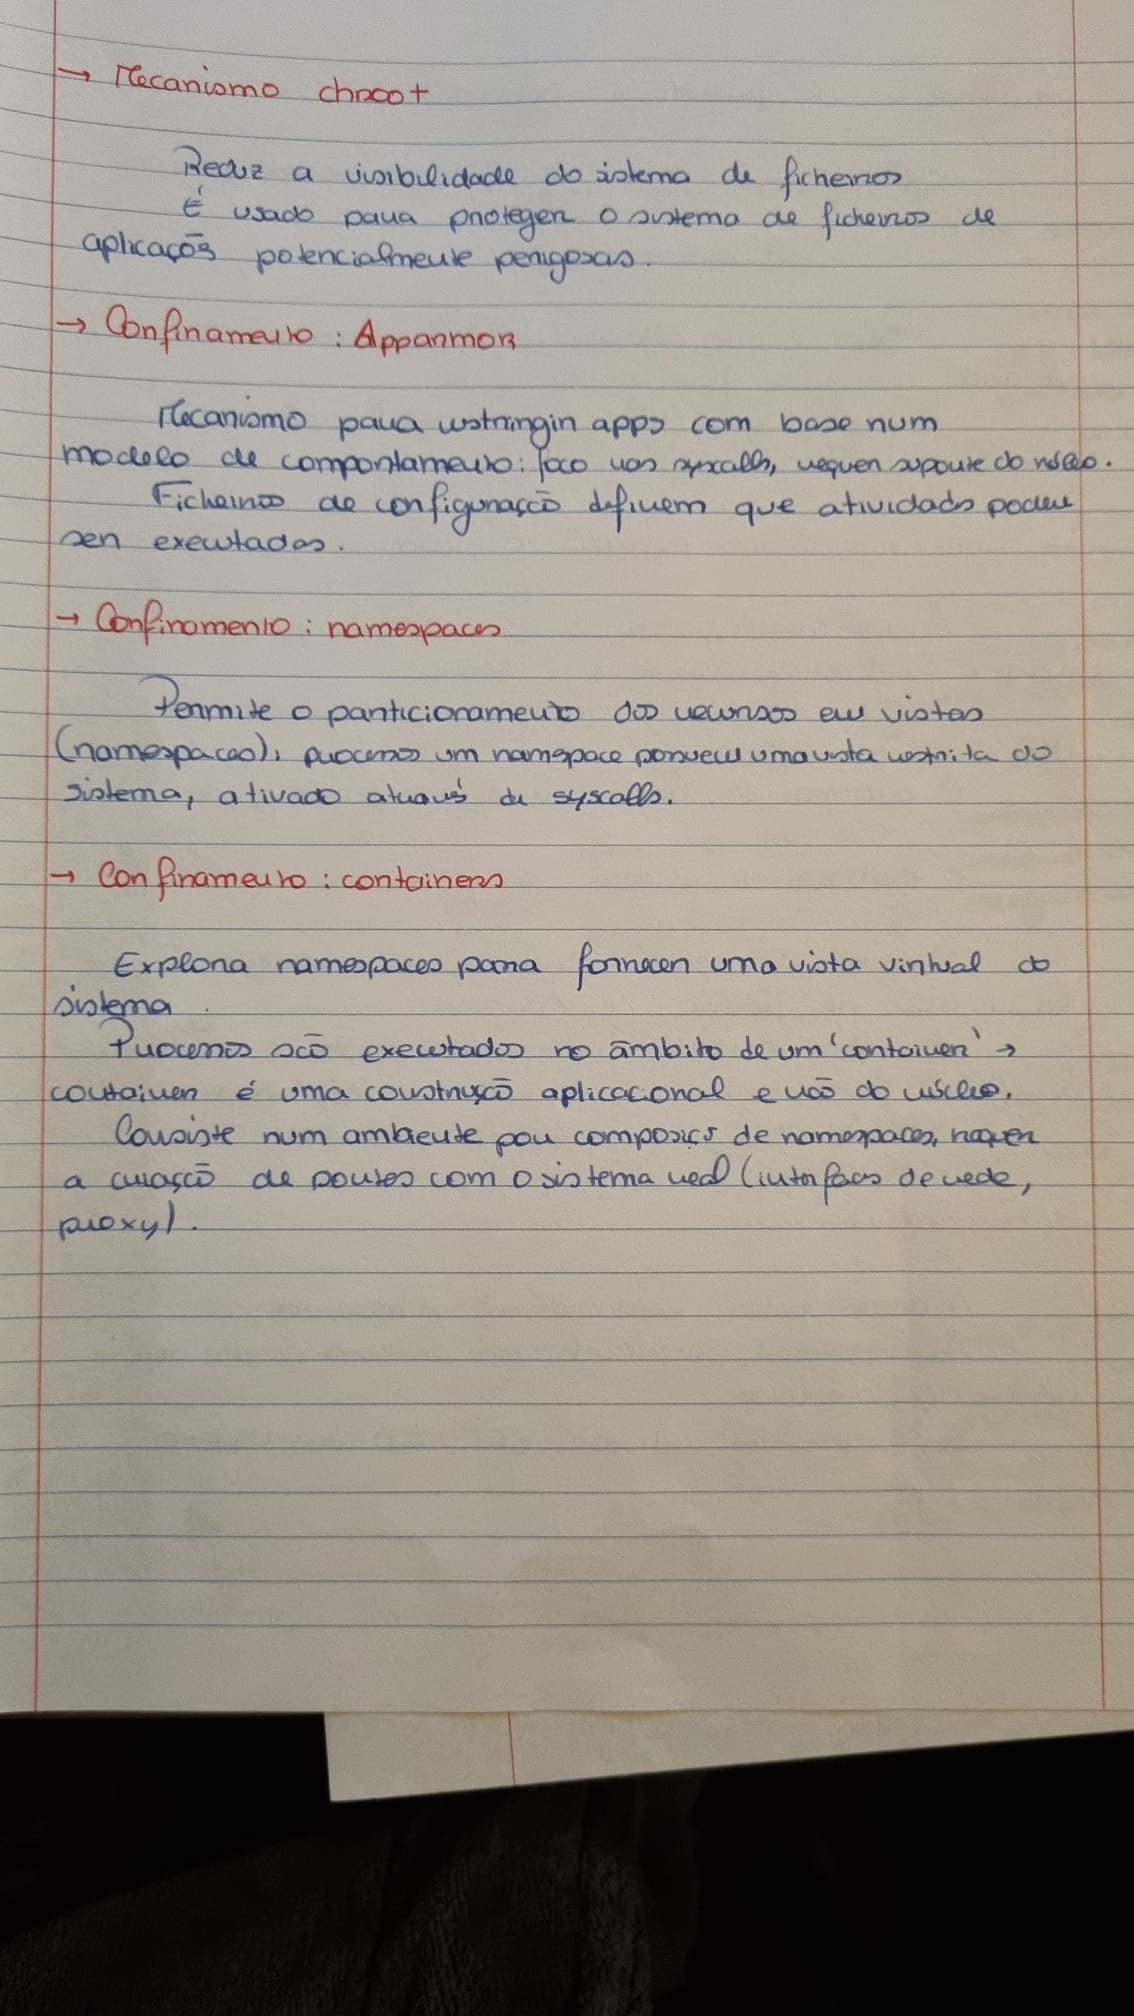 → Mecanismo chroot
Reduz a visibilidade do sistema de ficheiros
É usado para proteger o sistema de ficheiros de
aplicaçõs potencialmente perigosas.
→ Confinamento : Apparmor
Mecanismo para restringir apps com base num
modelo de comportamento: foco nas syscalls, requer suporte do núcleo.
Ficheiros de configuração definem que atividades podem
ser executadas.
→ Confinamento : namespaces
Permite o particionamento dos recursos em vistas
(namespaces), processos um namespace possuem uma vista restrita do
sistema, ativado através de syscalls.
→ Confinamento : containers
Explora namespaces para fornecer uma vista virtual do
sistema.
Processos são executados no âmbito de um 'container' →
container é uma construção aplicacional e não do núcleo.
Consiste num ambiente por de namespaces, requer
a criação de pontes com o sistema real (interfaces de rede,
proxy).